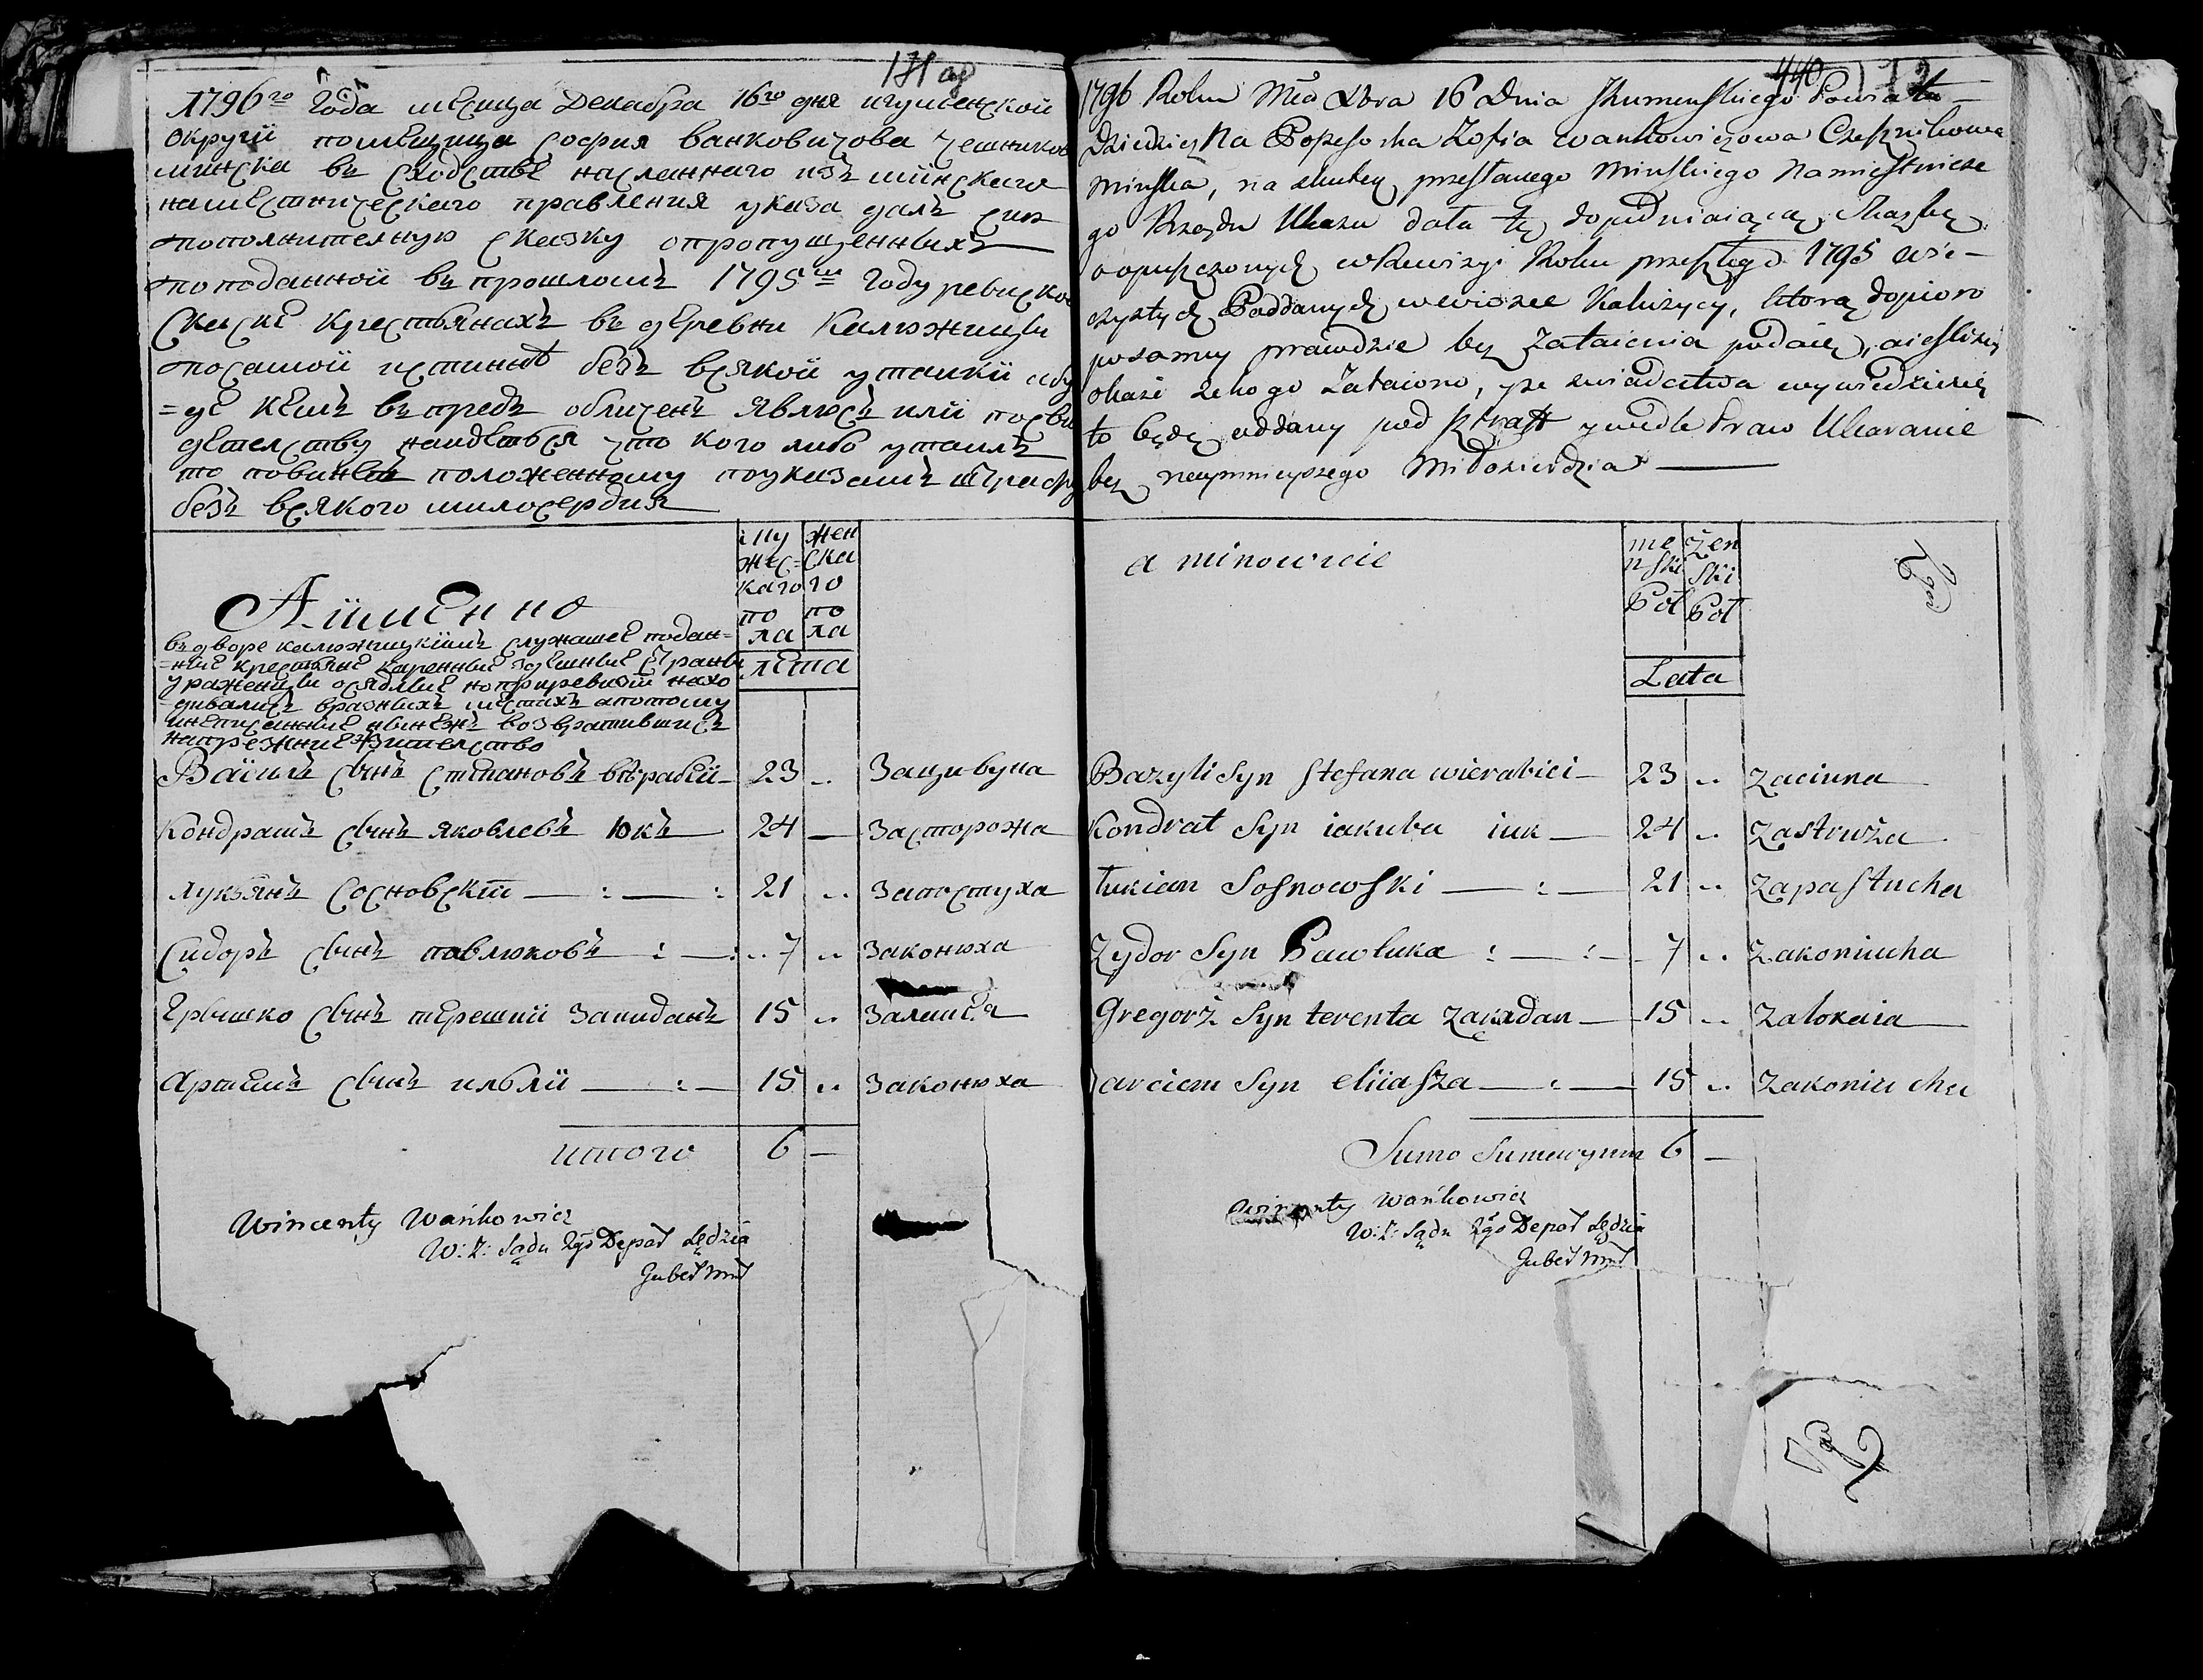 171 об
1796го Года месяца Декабря 16го дня игуменской
округи помещица София Ванковичова чешников
минска въ сходстве насланнаго изъ минскаго
наместническаго правления указа далъ сию
пополнительную сказку опропущенныхъ
поподанной въ прошломъ 1795м Году ревиской
Скаске крестьянахъ въ деревни Калюжицы
посамой истинне безъ всякой утайки абу
=де кемъ впредъ обличенъ явлюсь или посви
детелству найдется что кого либо утаилъ
то повиненъ положенному поуказамъ штрафу
безъ всякого милосердия
Аименно
въдворе калюжицкимъ служащее подан=
=ние крестьяне
на прежние жителство
му
жес=
каго
по
ла
жен
ска
го
по
ла
лета
Василь сынъ Степановъ верабей 23 .. Зацивуна
Кондратъ сынъ яковлевъ юкъ 24 — Засторожа
лукьянъ Сосновский — : — : 21 .. Запостуха
Сидоръ сынъ павлюковъ : — : .. 7 .. Законюха
Грышко сынъ терешки Закиданъ 15 ..
Артемъ сынъ ильи — : — 15 .. Законюха
итого 6 —
Wincenty Wańkowicz
W: Z: Sądu 2go Depat Sędzia
Guber Miń
440 172
1796 Roku Mca Xbra 16 Dnia Ihumenskiego Powiatu
Dziedziczna Possesorka Zofia Wankowiczowa Czesznikowa
Minska, na skutek przesłanego Minskiego Namiestnicze
go Rządu Ukazu data tę dopełniaiącą Skaskę
o opuszczonych w Rewizyi Roku przeszłego 1795 wie-
czystych Poddanych we wiosce Kaluzycy, ktorą dopioro
po samey prawdzie bez zataienia podaię, aieslize
okaże że kogo zataiono, y ze swiadectwa wywiedzie się
to będę oddany pod sztraff y wedle Praw Ukaranie
bez naymnieyszego Miłosierdzia
a minowicie
mę
nski
Poł
żen
ski
Poł
Lata
Bazyli Syn Stefana wierabiei 23 .. Zaciuna
Kondrat Syn iakuba iuk — 24 .. Zastruża
Łukian Sosnowski — : — 21 .. Zapastucha
Zydor Syn Pawluka : — : — 7 .. Zakoniucha
Gregorż Syn terenta Zakidan — 15 .. Zalokaia
arciem Syn eliiasza — : — 15 .. Zakoniucha
Sumo Sumarynm 6 —
Wincenty Wańkowicz
W: Z: Sądu 2go Depat Sędzia
Guber Miń